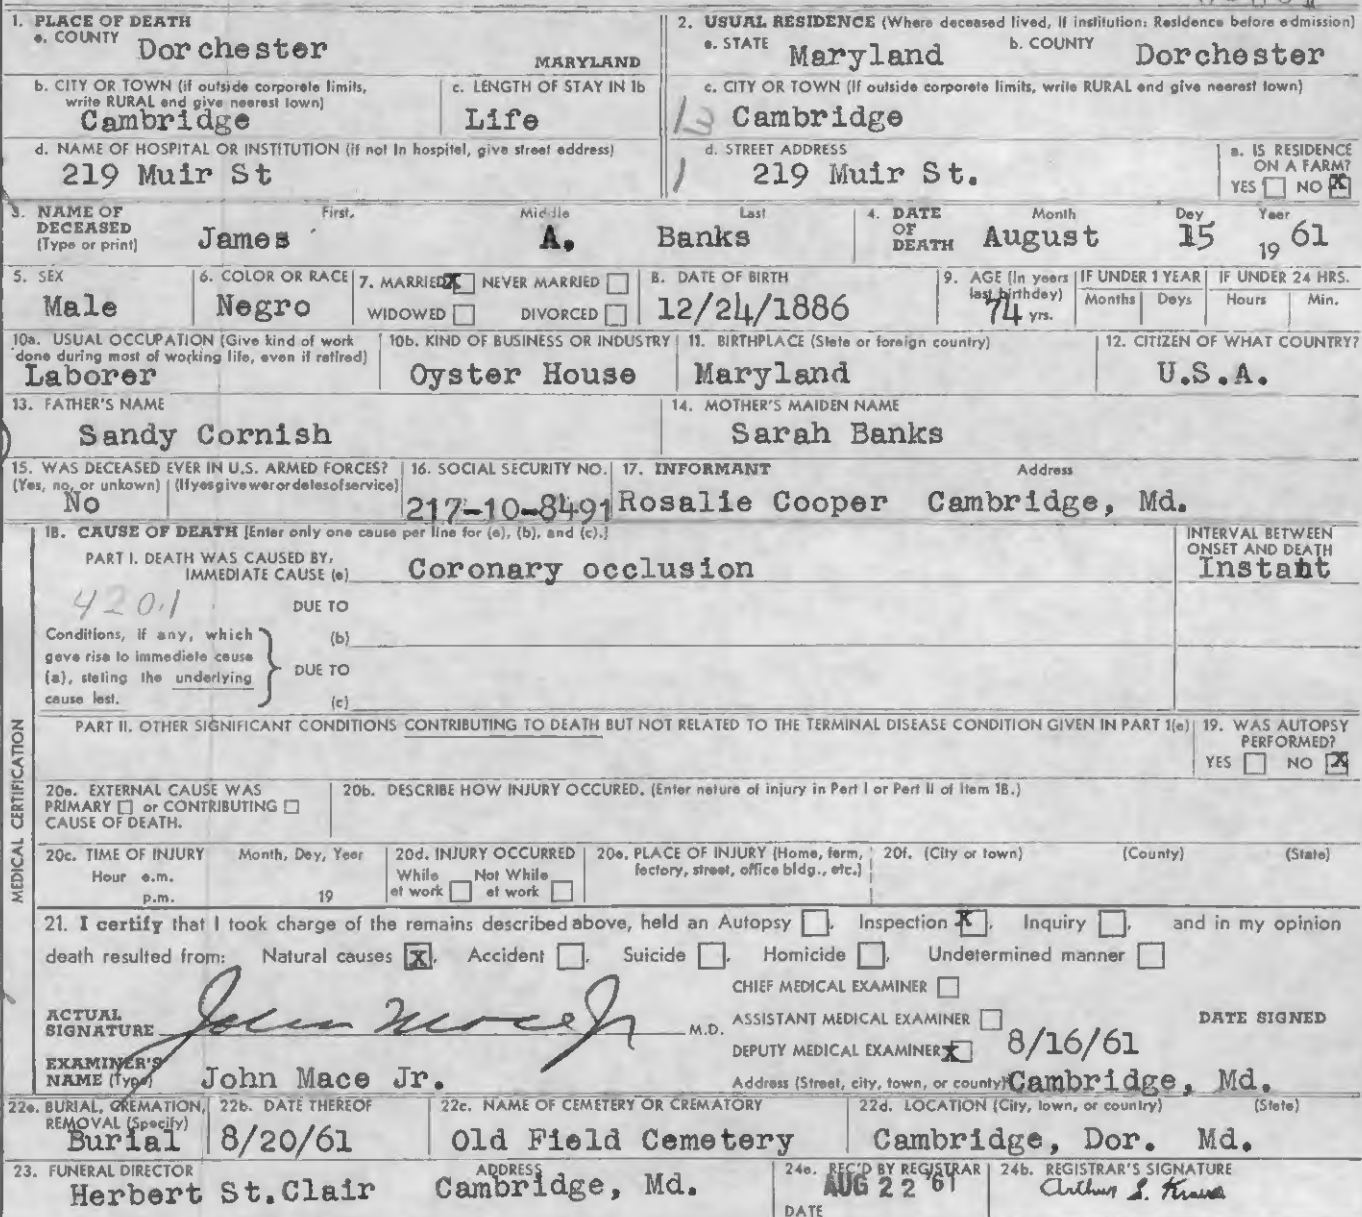 1. PLACE OF DEATH
a. COUNTY Dorchester MARYLAND
2. USUAL RESIDENCE (Where deceased lived, If institution: Residence before admission)
a. STATE Maryland b. COUNTY Dorchester
b. CITY OR TOWN (if outside corporate limits, write RURAL and give nearest town)
Cambridge
c. LENGTH OF STAY IN 1b
Life
c. CITY OR TOWN (If outside corporate limits, write RURAL and give nearest town)
Cambridge
d. NAME OF HOSPITAL OR INSTITUTION (if not in hospital, give street address)
219 Muir St
d. STREET ADDRESS
219 Muir St.
e. IS RESIDENCE ON A FARM?
YES NO X
3. NAME OF DECEASED (Type or print)
First Middle Last
James A. Banks
4. DATE OF DEATH
Month Day Year
August 15 19 61
5. SEX
Male
6. COLOR OR RACE
Negro
7. MARRIED X NEVER MARRIED
WIDOWED DIVORCED
8. DATE OF BIRTH
12/24/1886
9. AGE (In years last birthday)
74 yrs.
IF UNDER 1 YEAR
Months Days
IF UNDER 24 HRS.
Hours Min.
10a. USUAL OCCUPATION (Give kind of work done during most of working life, even if retired)
Laborer
10b. KIND OF BUSINESS OR INDUSTRY
Oyster House
11. BIRTHPLACE (State or foreign country)
Maryland
12. CITIZEN OF WHAT COUNTRY?
U.S.A.
13. FATHER'S NAME
Sandy Cornish
14. MOTHER'S MAIDEN NAME
Sarah Banks
15. WAS DECEASED EVER IN U.S. ARMED FORCES?
(Yes, no, or unkown) (If yes give war or dates of service)
No
16. SOCIAL SECURITY NO.
217-10-8491
17. INFORMANT Address
Rosalie Cooper Cambridge, Md.
18. CAUSE OF DEATH [Enter only one cause per line for (a), (b), and (c).]
PART I. DEATH WAS CAUSED BY,
IMMEDIATE CAUSE (a) Coronary occlusion
INTERVAL BETWEEN ONSET AND DEATH
Instant
420.1
DUE TO
(b)
Conditions, if any, which gave rise to immediate cause (a), stating the underlying cause last.
DUE TO
(c)
MEDICAL CERTIFICATION
PART II. OTHER SIGNIFICANT CONDITIONS CONTRIBUTING TO DEATH BUT NOT RELATED TO THE TERMINAL DISEASE CONDITION GIVEN IN PART 1(a)
19. WAS AUTOPSY PERFORMED?
YES NO X
20a. EXTERNAL CAUSE WAS
PRIMARY or CONTRIBUTING
CAUSE OF DEATH.
20b. DESCRIBE HOW INJURY OCCURED. (Enter nature of injury in Part I or Part II of Item 18.)
20c. TIME OF INJURY Month, Day, Year
Hour a.m.
p.m. 19
20d. INJURY OCCURRED
While at work Not While at work
20e. PLACE OF INJURY (Home, farm, factory, street, office bldg., etc.)
20f. (City or town) (County) (State)
21. I certify that I took charge of the remains described above, held an Autopsy , Inspection X, Inquiry , and in my opinion
death resulted from: Natural causes X, Accident , Suicide , Homicide , Undetermined manner
CHIEF MEDICAL EXAMINER
ACTUAL SIGNATURE John Mace Jr M.D.
ASSISTANT MEDICAL EXAMINER
DEPUTY MEDICAL EXAMINER X
DATE SIGNED
8/16/61
EXAMINER'S NAME (Type) John Mace Jr.
Address (Street, city, town, or county) Cambridge, Md.
22a. BURIAL, CREMATION, REMOVAL (Specify)
Burial
22b. DATE THEREOF
8/20/61
22c. NAME OF CEMETERY OR CREMATORY
Old Field Cemetery
22d. LOCATION (City, town, or country) (State)
Cambridge, Dor. Md.
23. FUNERAL DIRECTOR ADDRESS
Herbert St.Clair Cambridge, Md.
24a. REC'D BY REGISTRAR
AUG 22 '61
DATE
24b. REGISTRAR'S SIGNATURE
Arthur S. Kraus